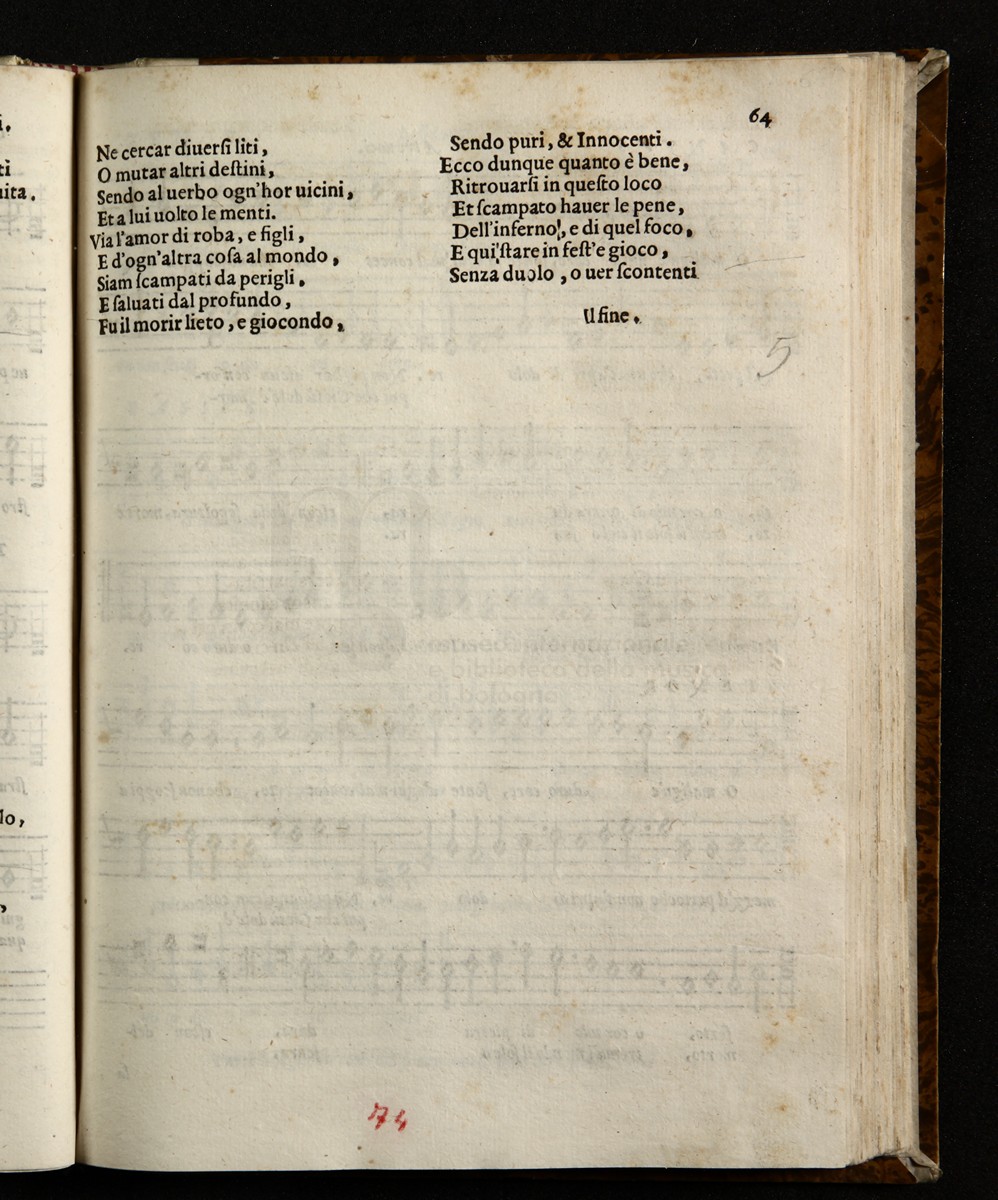 64
Ne cercar diuerſi liti,
O mutar altri deſtini,
Sendo al uerbo ogn'hor uicini,
Et a lui uolto le menti.
Via l'amor di roba, e figli,
E d'ogn'altra coſa al mondo,
Siam ſcampati da perigli,
E ſaluati dal profundo,
Fu il morir lieto, e giocondo,
Sendo puri, & Innocenti.
Ecco dunque quanto è bene,
Ritrouarſi in queſto loco
Et ſcampato hauer le pene,
Dell'inferno, e di quel foco,
E qui ſtare in feſt'e gioco,
Senza duolo, o uer ſcontenti
Il fine.
5
museo internazionale
e biblioteca della musica
di bologna
74